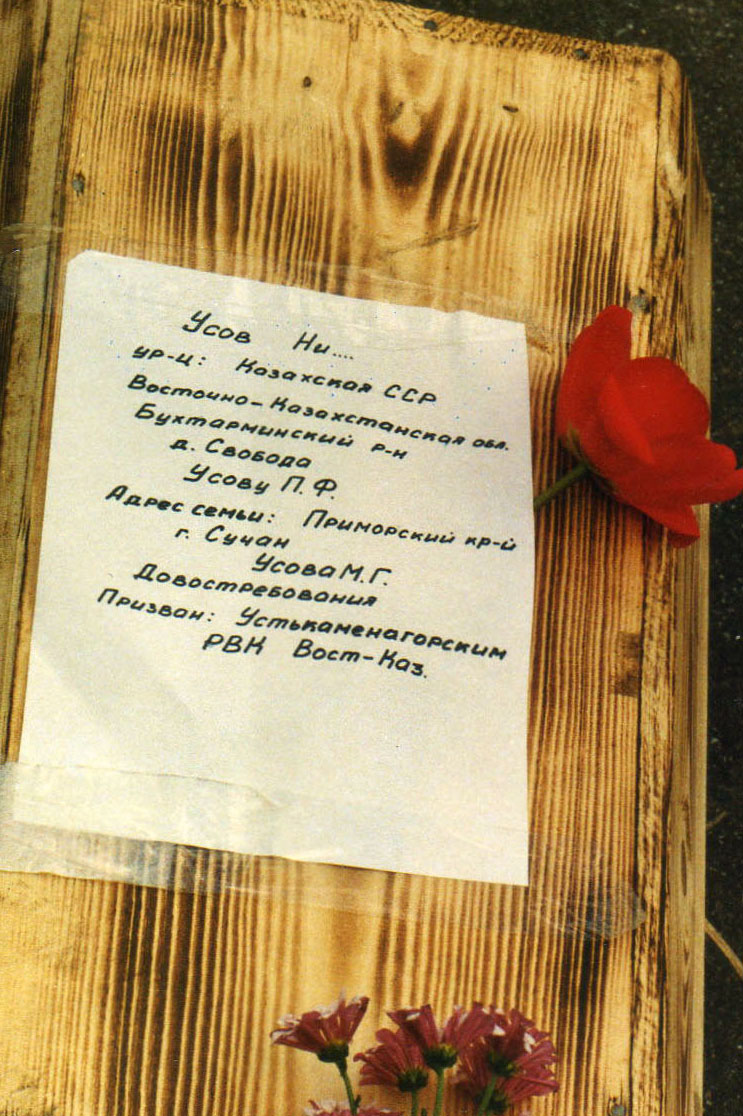 Усов Ни....
ур-ц: Казахская ССР
Восточно-Казахстанская обл.
Бухтарминский р-н
д. Свобода
Усову П. Ф.
Адрес семьи: Приморский кр-й
г. Сучан
Усова М. Г.
Довостребования
Призван: Устькаменагорским
РВК Вост-Каз.